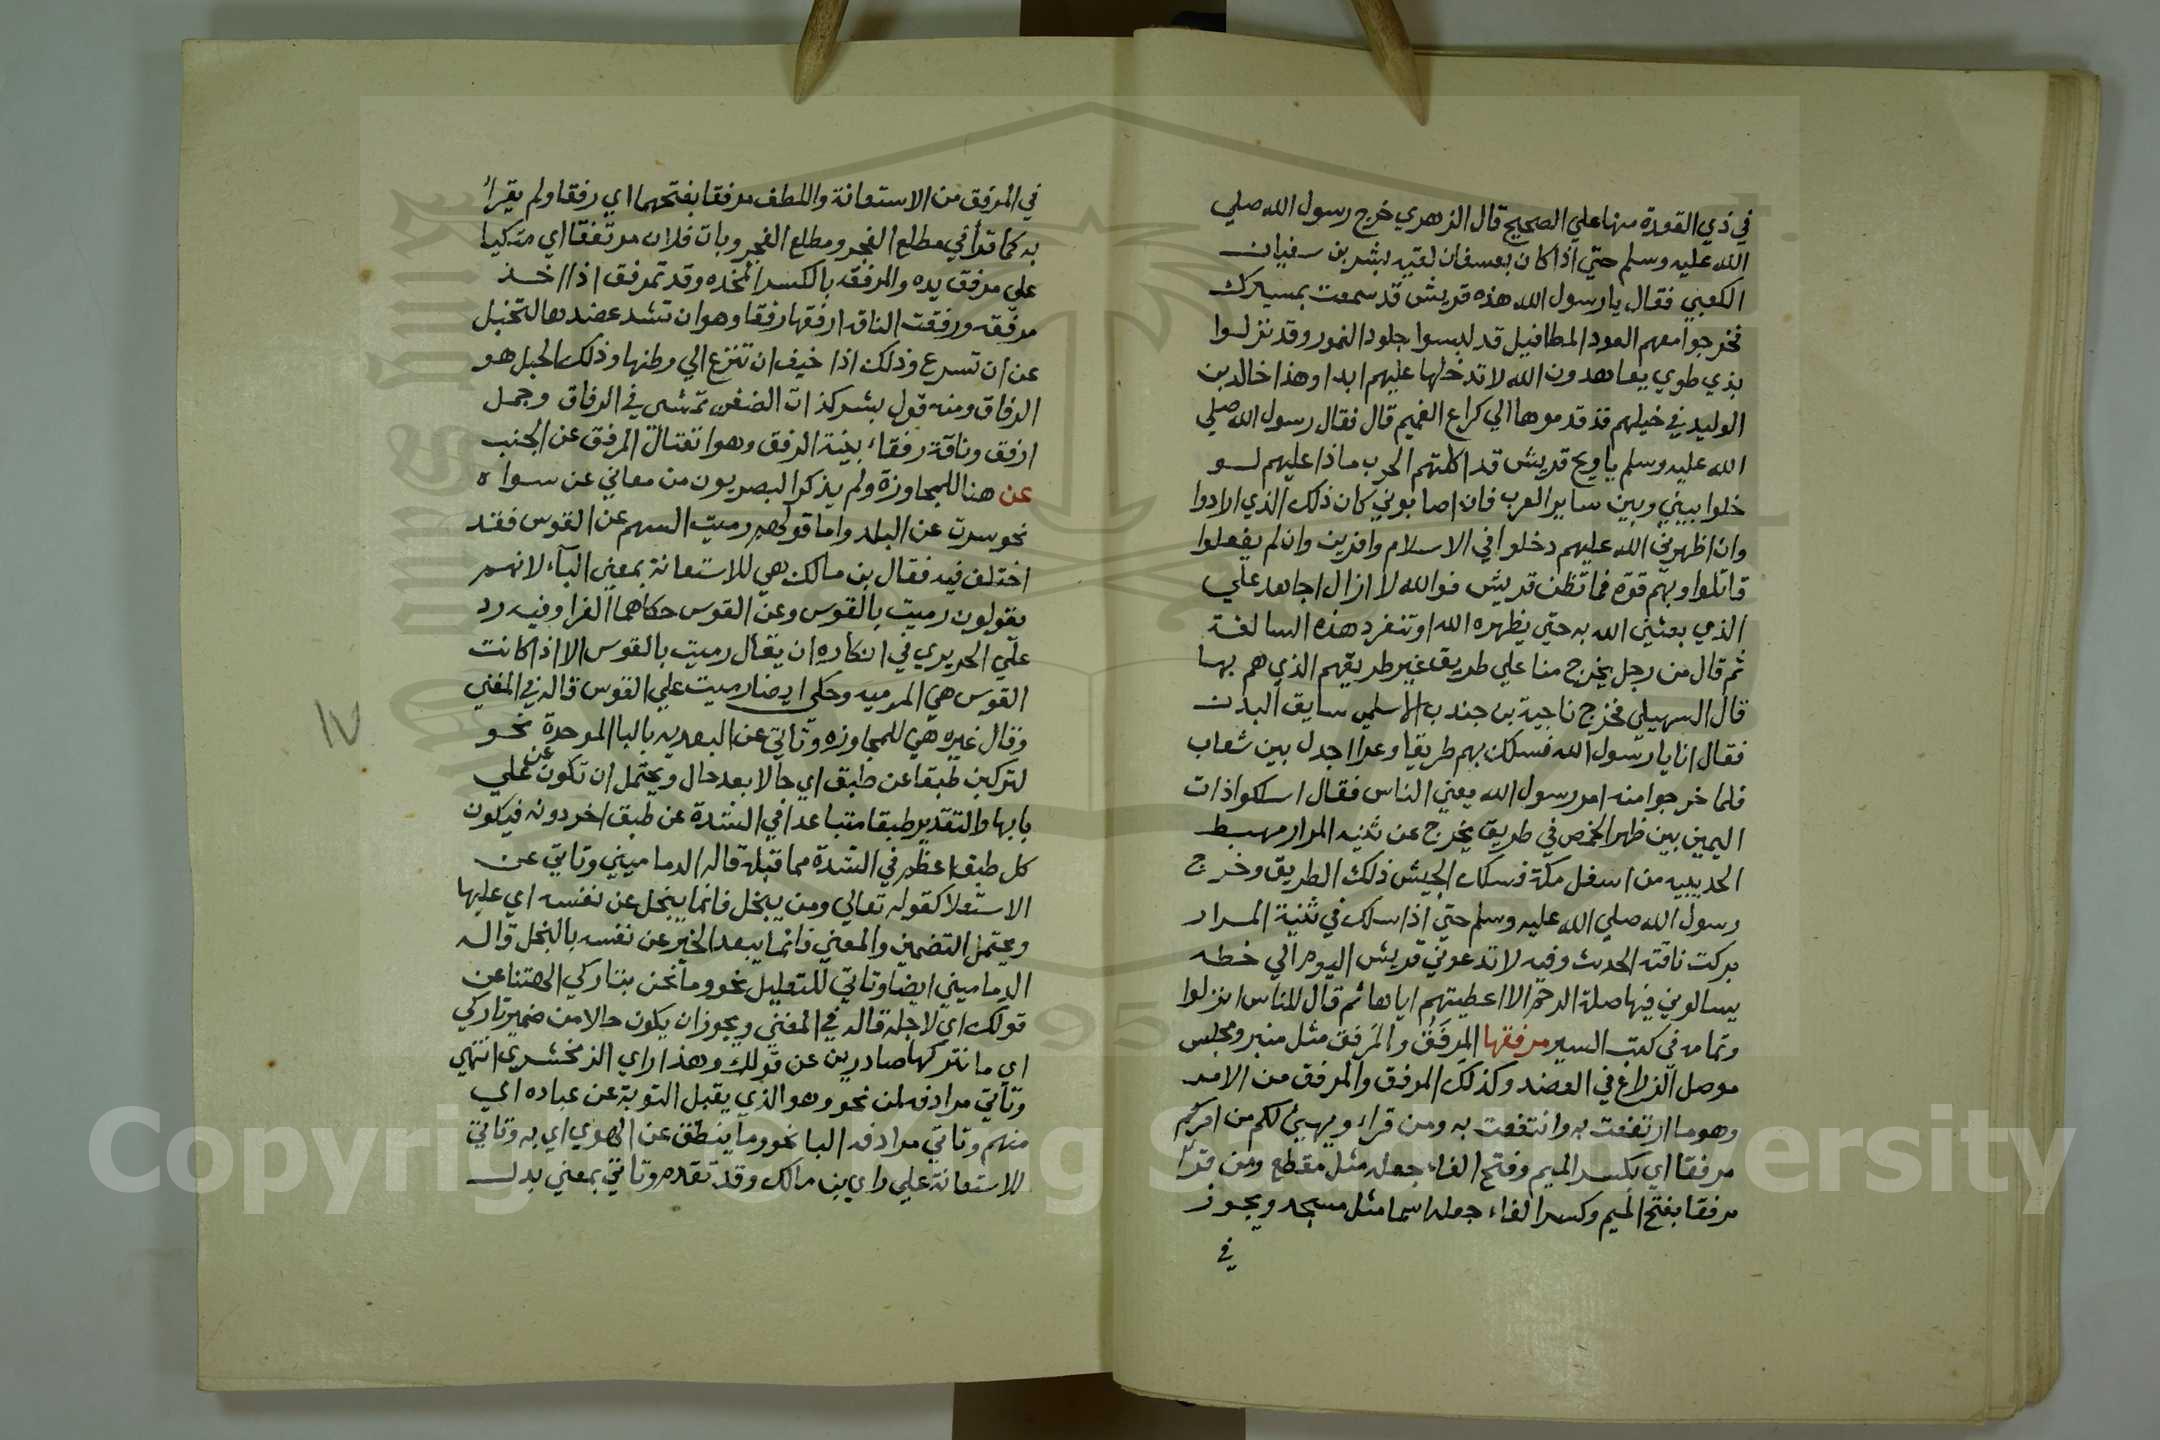 في ذي القعدة منها علي الصحيح قال الزهري خرج رسول الله صلي
الله عليه وسلم حتي اذا كان بعسفان لقيه بشر بن سفيان
الكعبي فقال يا رسول الله هذه قريش قد سمعت بمسيرك
فخرجوا معهم العوذ المطافيل قد لبسوا جلود النمور وقد نزلوا
بذي طوي يعاهدون الله لا تدخلها عليهم ابدا وهذا خالد بن
الوليد في خيلهم قد قدموها الي كراع الغميم قال فقال رسول الله صلي
الله عليه وسلم يا ويح قريش قد اكلتهم الحرب ماذا عليهم لو
خلوا بيني وبين ساير العرب فان اصابوني كان ذلك الذي ارادوا
وان اظهرني الله عليهم دخلوا في الاسلام وافرين وان لم يفعلوا
قاتلوا وبهم قوة فما تظن قريش فوالله لا ازال اجاهد علي
الذي بعثني الله به حتي يظهره الله او تنفرد هذه السالفة
ثم قال من رجل يخرج منا علي طريق غير طريقهم الذي هم بها
قال السهيلي فخرج ناجية بن جندب الاسلمي سايق البدن
فقال انا يا رسول الله فسلك بهم طريقا وعرا اجدل بين شعاب
فلما خرجوا منه امر رسول الله يعني الناس فقال اسلكوا ذات
اليمين بين ظهر الحمص في طريق يخرج عن ثنيه المرار مهبط
الحديبيه من اسفل مكة فسلك الجيش ذلك الطريق وخرج
رسول الله صلي الله عليه وسلم حتي اذا سلك في ثنية المرار
بركت ناقته الحديث وفيه لا تدعوني قريش اليوم الي خطه
يسالوني فيها صلة الرحم الا اعطيتهم اياها ثم قال للناس انزلوا
وتمامه في كتب السير مرفقها المِرفَق والمَرفِق مثل منبر ومجلس
موصل الذراع في العضد وكذلك المرفق والمرفق من الامر
وهو ما ارتفقت به وانتفعت به ومن قراء ويهيئ لكم من امركم
مرفقا اي بكسر الميم وفتح الفاء جعله مثل مقطع ومن قرا
مرفقا بفتح الميم وكسر الفاء جعله اسما مثل مسجد ويجوز
في
في المرفق من الاستعانة واللطف مرفقا بفتحهما اي رفقا ولم يقرا
به كما قرا في مطلع الفجر ومطلع الفجر وبات فلان مرتفقا اي متكيا
علي مرفق يده والمرفقه بالكسر المخده وقد تمرفق اذا اخذ
مرفقه ورفقت الناقه ارفقها رفقا وهو ان تشد عضدها لتخبل
عن ان تسرع وذلك اذا خيف ان تنزع الي وطنها وذلك الحبل هو
الرفاق ومنه قول بشر كذات الضغن تمشي في الرفاق وجمل
ارفق وناقة رفقاء بينة الرفق وهو انفتال المرفق عن الجنب
عن هنا للمجاوزة ولم يذكر البصريون من معاني عن سواه
نحو سرت عن البلد واما قولهم رميت السهم عن القوس فقد
اختلف فيه فقال بن مالك هي للاستعانة بمعني الباء لانهم
يقولون رميت بالقوس وعن القوس حكاهما الفرا وفيه رد
علي الحريري في انكاره ان يقال رميت بالقوس الا اذا كانت
القوس هي المرميه وحكي ايضا رميت علي القوس قاله في المغني
وقال غيره هي للمجاوزه وتاتي عن البعديه بالبا الموحدة نحو
لتركبن طبقا عن طبق اي حالا بعد حال ويحتمل ان تكون عن علي
بابها والتقدير طبقا متباعدا في الشدة عن طبق اخر دونه فيكون
كل طبق اعظم في الشدة مما قبله قاله الدماميني وتاتي عن
الاستعلا كقوله تعالي ومن يبخل فانما يبخل عن نفسه اي عليها
ويحتمل التضمين والمعني فانما يبعد الخير عن نفسه بالبخل قاله
الدماميني ايضا وتاتي للتعليل نحو وما نحن بتاركي الهتنا عن
قولك اي لاجله قاله في المغني ويجوز ان يكون حالا من ضمير تاركي
اي ما نتركها صادرين عن قولك وهذا راي الزمخشري انتهي
وتاتي مرادفه لمن نحو وهو الذي يقبل التوبة عن عباده اي
منهم وتاتي مرادفه البا نحو وما ينطق عن الهوي اي به وتاتي
للاستعانة علي راي بن مالك وقد تقدم وتاتي بمعني بدل
١٧
Copyright © King Saud University
1957